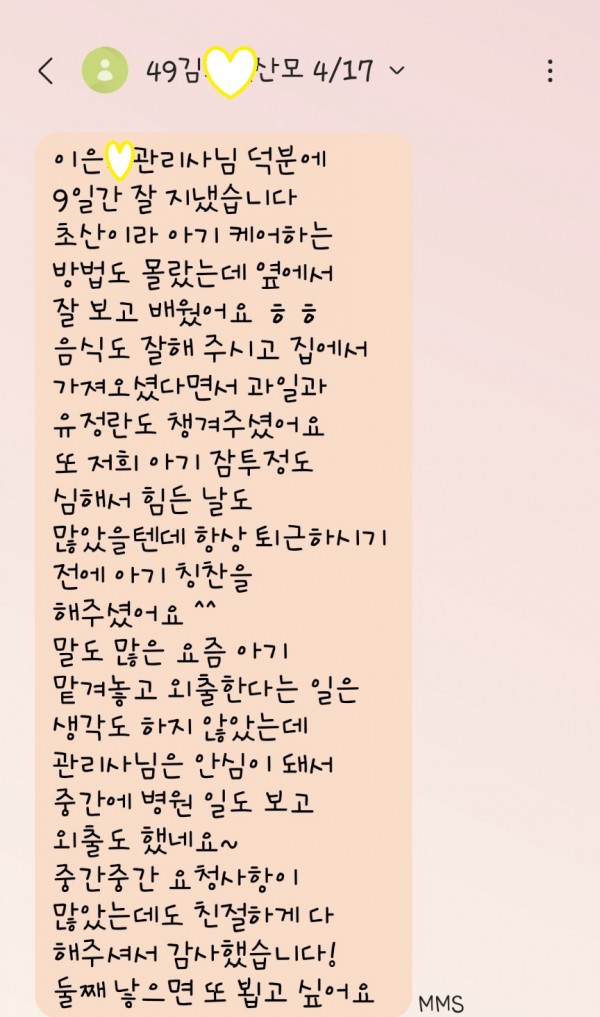 49김 산모 4/17
이은 관리사님 덕분에
9일간 잘 지냈습니다
초산이라 아기 케어하는
방법도 몰랐는데 옆에서
잘 보고 배웠어요 ㅎㅎ
음식도 잘해 주시고 집에서
가져오셨다면서 과일과
유정란도 챙겨주셨어요
또 저희 아기 잠투정도
심해서 힘든 날도
많았을텐데 항상 퇴근하시기
전에 아기 칭찬을
해주셨어요 ^^
말도 많은 요즘 아기
맡겨놓고 외출한다는 일은
생각도 하지 않았는데
관리사님은 안심이 돼서
중간에 병원 일도 보고
외출도 했네요~
중간중간 요청사항이
많았는데도 친절하게 다
해주셔서 감사했습니다!
둘째 낳으면 또 뵙고 싶어요
MMS